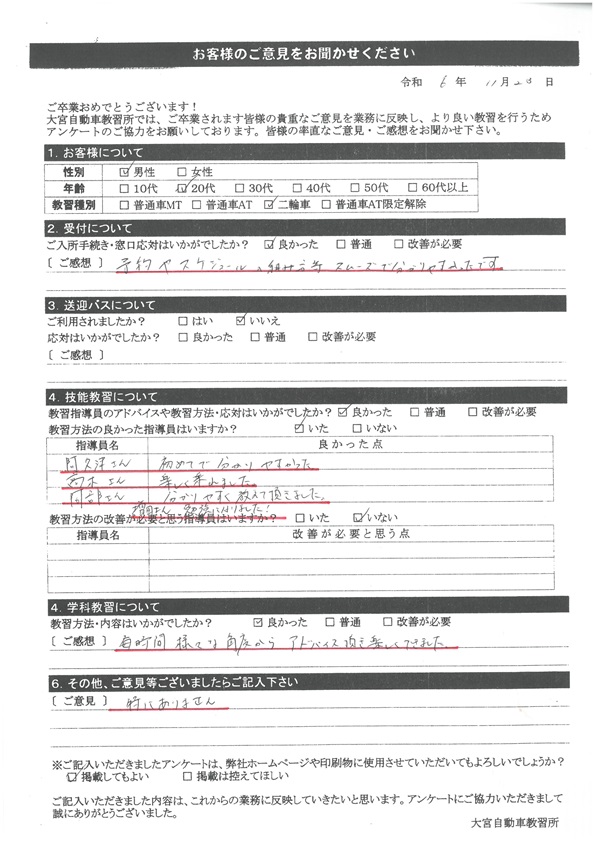 お客様のご意見をお聞かせください
令和 6 年 11月 28 日
ご卒業おめでとうございます！
大宮自動車教習所では、ご卒業されます皆様の貴重なご意見を業務に反映し、より良い教習を行うため
アンケートのご協力をお願いしております。皆様の率直なご意見・ご感想をお聞かせ下さい。
1. お客様について
性別 ☑男性 □女性
年齢 □10代 ☑20代 □30代 □40代 □50代 □60代以上
教習種別 □普通車MT □普通車AT ☑二輪車 □普通車AT限定解除
2. 受付について
ご入所手続き・窓口応対はいかがでしたか？ ☑良かった □普通 □改善が必要
〔 ご感想 〕 予約やスケジュールの組み方等 スムーズで分かりやすかったです
3. 送迎バスについて
ご利用されましたか？ □はい ☑いいえ
応対はいかがでしたか？ □良かった □普通 □改善が必要
〔 ご感想 〕
4. 技能教習について
教習指導員のアドバイスや教習方法・応対はいかがでしたか？ ☑良かった □普通 □改善が必要
教習方法の良かった指導員はいますか？ ☑いた □いない
指導員名 良かった点
阿久津さん 初めてで分かりやすかった
高木さん 楽しく乗れました
阿部さん 分かりやすく教えて頂きました。
さん 勉強になりました！
教習方法の改善が必要と思う指導員はいますか？ □いた ☑いない
指導員名 改善が必要と思う点
4. 学科教習について
教習方法・内容はいかがでしたか？ ☑良かった □普通 □改善が必要
〔 ご感想 〕 毎時間 様々な角度から アドバイス頂き楽しくできました
6. その他、ご意見等ございましたらご記入下さい
〔 ご意見 〕 特にありません
※ご記入いただきましたアンケートは、弊社ホームページや印刷物に使用させていただいてもよろしいでしょうか？
☑掲載してもよい □掲載は控えてほしい
ご記入いただきました内容は、これからの業務に反映していきたいと思います。アンケートにご協力いただきまして
誠にありがとうございました。
大宮自動車教習所